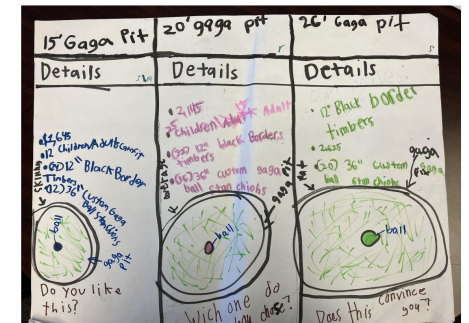 15' Gaga Pit
Details
• $1,645
• 12 Children/Adult can fit
12" Black Border
Timbers
36" Custom Gaga
Ball Stanchions
skinny
ball
gaga
pit
Do you like
this?
20' gaga pit
Details
• 2,145
Children Adult
12" black Borders
timbers
36" custom gaga
ball stan chiohs
average
gaga pit
ball
Wich one do
you chose?
26' Gaga pit
Details
• 12" Black border
timbers
• 2,625
• (20) 36" custom gaga
ball stan chiohs
fat
gaga
pit
ball
Does this convince
you?